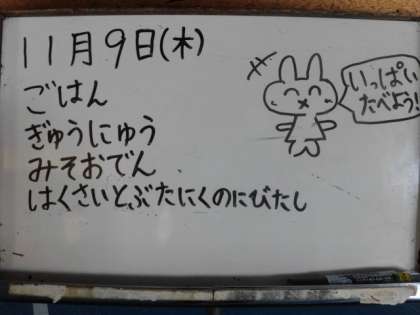 11月9日(木)
ごはん
ぎゅうにゅう
みそおでん
はくさいとぶたにくのにびたし
いっぱい
たべよう!